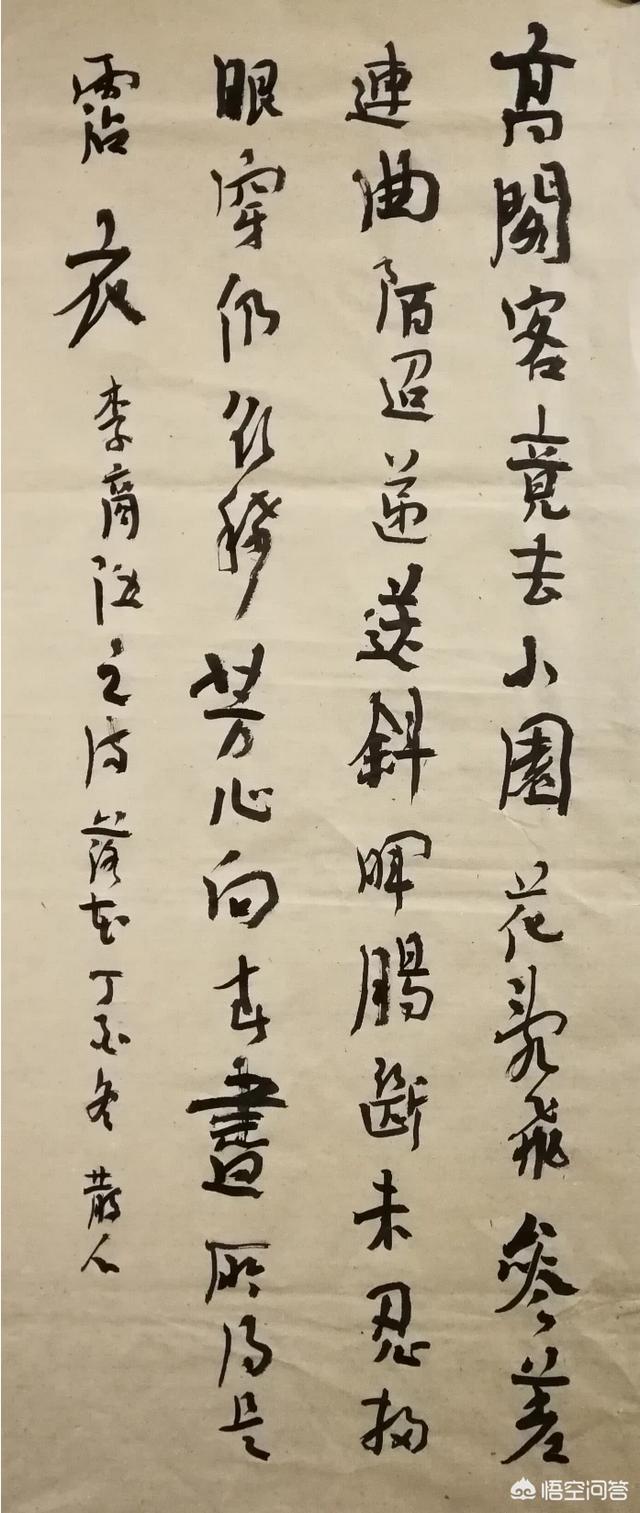 高閣客竟去小園花亂飛參差
連曲陌迢遞送斜暉腸斷未忍掃
眼穿仍欲稀芳心向春晝所得是
霑衣 李商隱之詩落花丁酉冬 散人
悟空问答